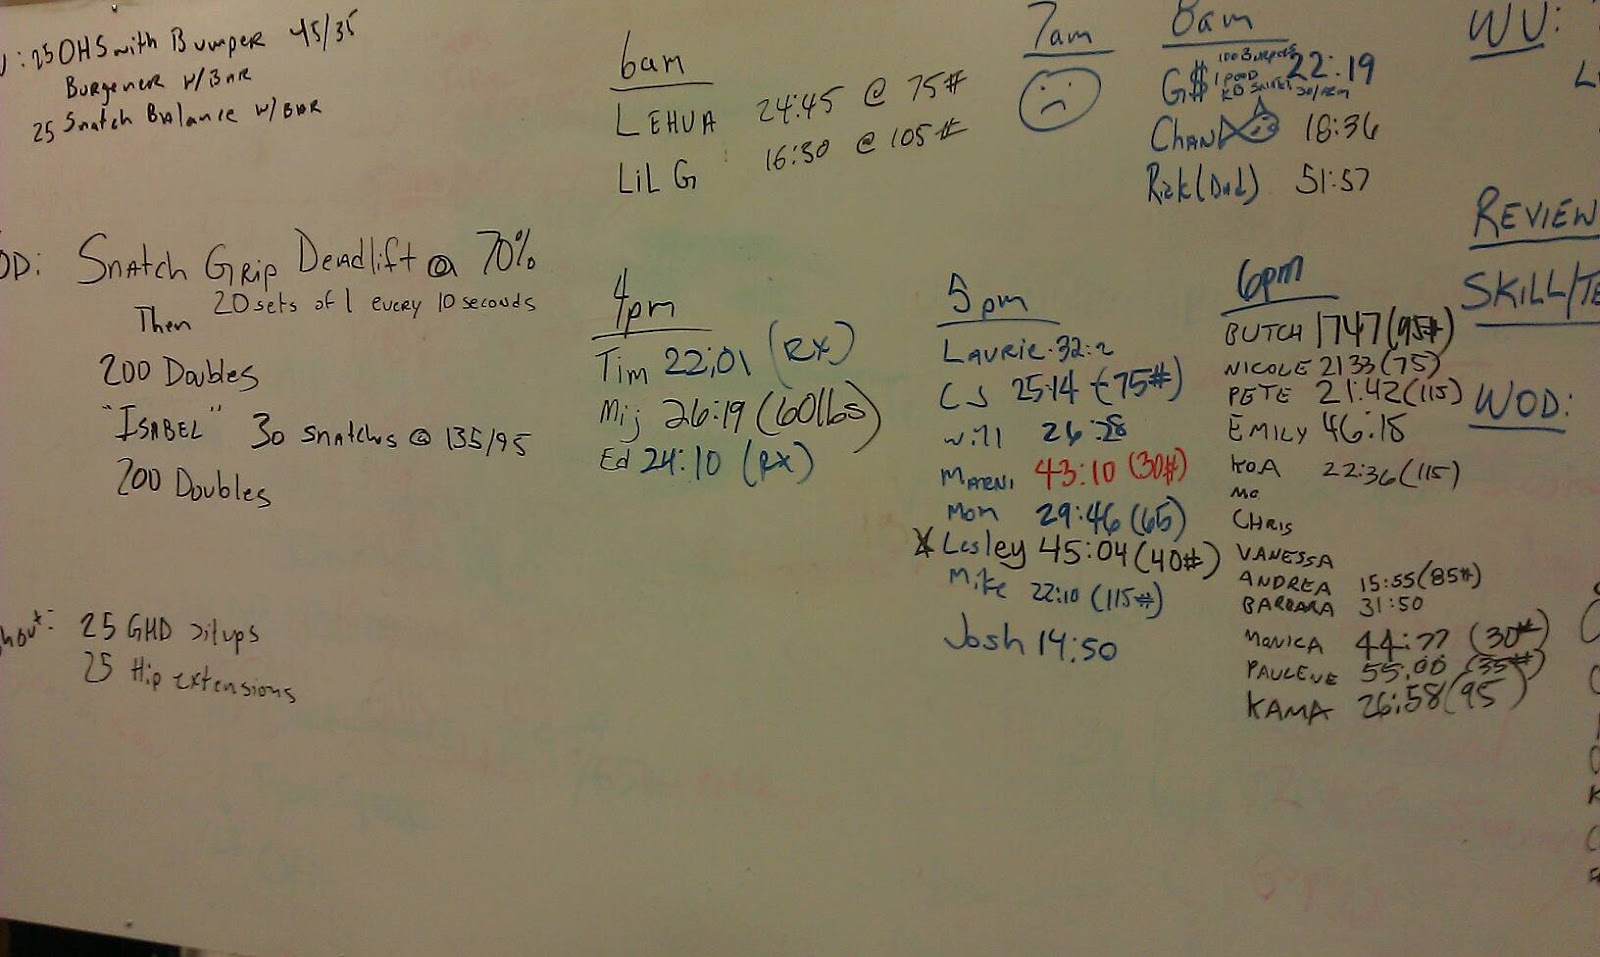 : 25 OHS with Bumper 45/35
Burgener w/ Bar
25 Snatch Balance w/ Bar
OD: Snatch Grip Deadlift @ 70%
20 sets of 1 every 10 seconds
Then
200 Doubles
"ISABEL" 30 snatches @ 135/95
200 Doubles
hout: 25 GHD situps
25 Hip extensions
6am
LEHUA 24:45 @ 75#
LiL G 16:30 @ 105#
7am
8am
G$ 100 Burpees 1 pood KB 22:19
Chan 18:36
Rick (Dad) 51:57
4pm
Tim 22:01 (RX)
Mij 26:19 (60lbs)
Ed 24:10 (RX)
5pm
LAURIE 32:2
CJ 25:14 (75#)
Will 26:28
MARNi 43:10 (30#)
Mon 29:46 (65)
Lesley 45:04 (40#)
Mike 22:10 (115#)
Josh 14:50
6pm
BUTCH 1747 (95#)
NICOLE 2133 (75)
PETE 21:42 (115)
EMILY 46:18
KOA 22:36 (115)
MO
CHRIS
VANESSA
ANDREA 15:55 (85#)
BARBARA 31:50
MONICA 44:77 (30#)
PAULENE 55:00 (35#)
KAMA 26:58 (95)
WU:
REVIEW
SKILL/TE
WOD: